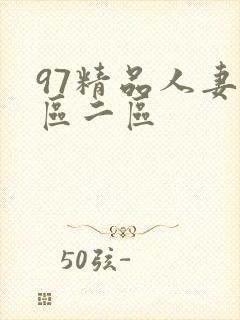 97精品人妻
區二區
50弦-